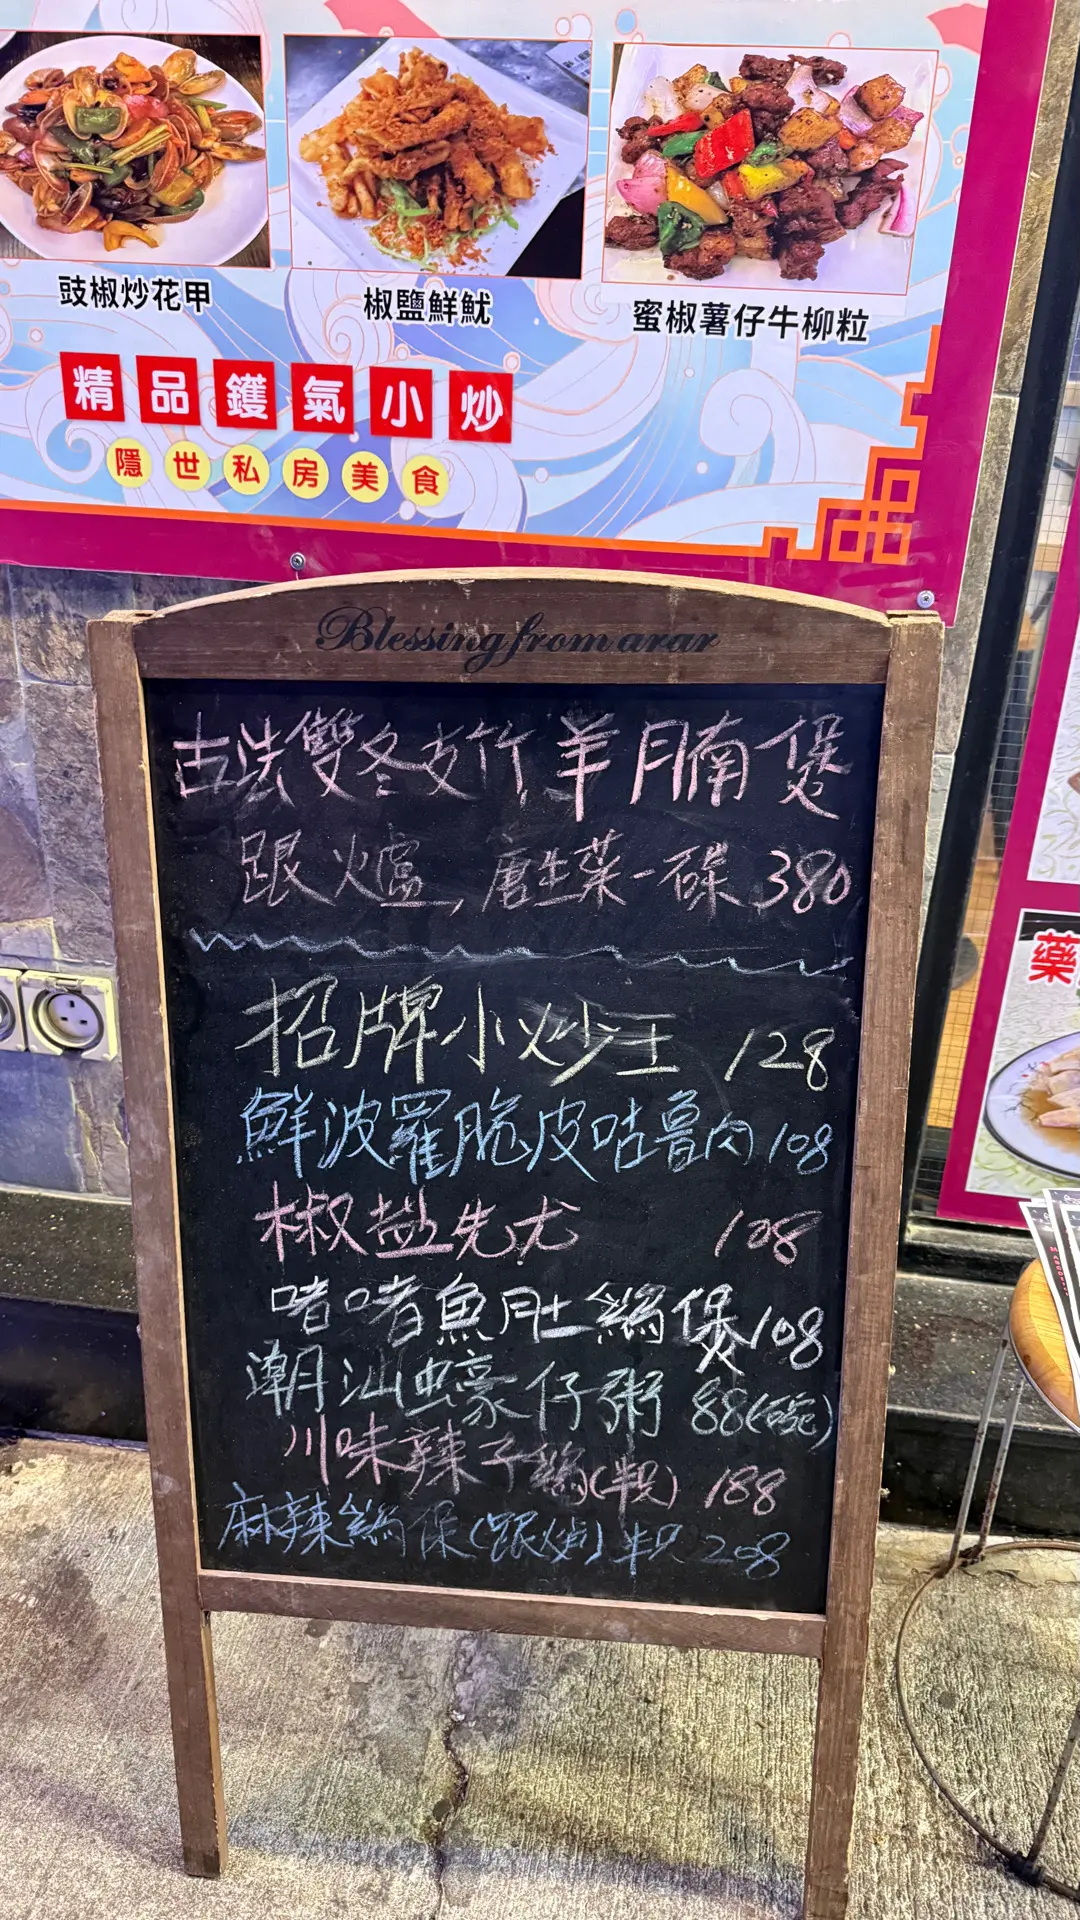 豉椒炒花甲
椒鹽鮮魷
蜜椒薯仔牛柳粒
精品鑊氣小炒
隱世私房美食
Blessing from arar
古法雙冬支竹羊腩煲
跟火爐,唐生菜一碟 380
招牌小炒王 128
鮮波羅脆皮咕魯肉 108
椒盐先尤 108
啫啫魚肚鷄煲 108
潮汕蠔仔粥 88(碗)
川味辣子鷄(半只) 188
麻辣鷄煲(跟火炉)半只 208
藥